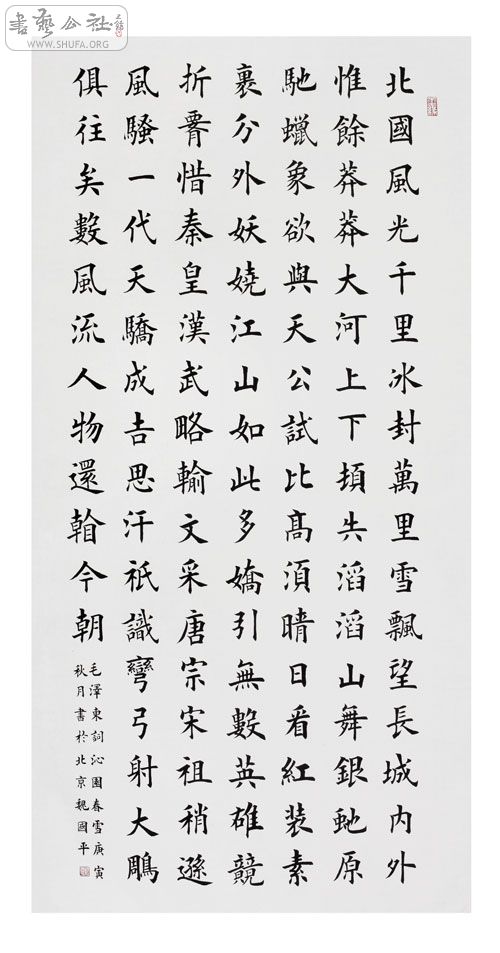 書藝公社
WWW.SHUFA.ORG
北國風光千里冰封萬里雪飄望長城內外
惟餘莽莽大河上下頓失滔滔山舞銀虵原
馳蠟象欲與天公試比髙須晴日看紅装素
裹分外妖嬈江山如此多嬌引無數英雄競
折惜秦皇漢武略輸文采唐宗宋祖稍遜
風騷一代天驕成吉思汗祇識彎弓射大鵰
俱往矣數風流人物還今朝
毛澤東詞沁園春雪庚寅
秋月書於北京魏國平